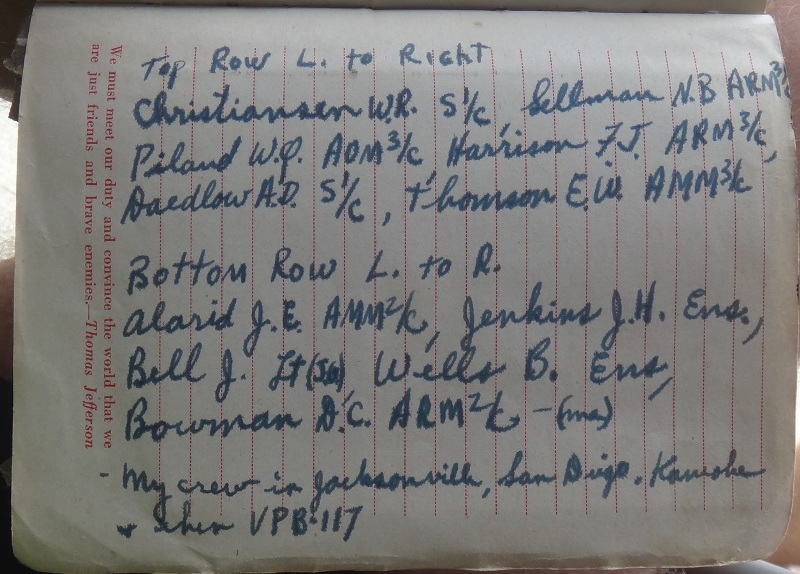 Top Row L. to Right
Christiansen W.R. S1/c, Sellman N.B ARM3/c
Piland W.P. AOM3/c Harrison F.J. ARM3/c,
Daedlow A.D. S1/c, Thomson E.W. AMM3/c
Bottom Row L. to R.
Alarid J.E. AMM2/c, Jenkins J.H. Ens.,
Bell J. Lt (JG), Wells B. Ens,
Bowman D.C. ARM2/c, - (me)
- My crew in Jacksonville, San Diego, Kaneohe
+ then VPB-117
We must meet our duty and convince the world that we
are just friends and brave enemies.—Thomas Jefferson